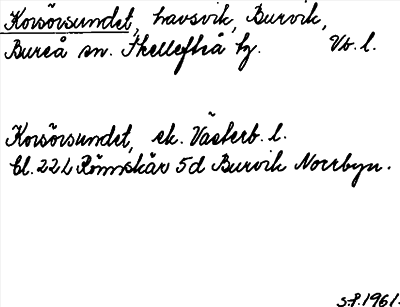 Korsörsundet, havsvik, Burvik,
Bureå sn. Skellefteå tg. Vb. l.
Korsörsundet, ek. Västerb. l.
Bl. 22 L Rönnskär 5d Burvik Norrbyn.
S.P. 1961.